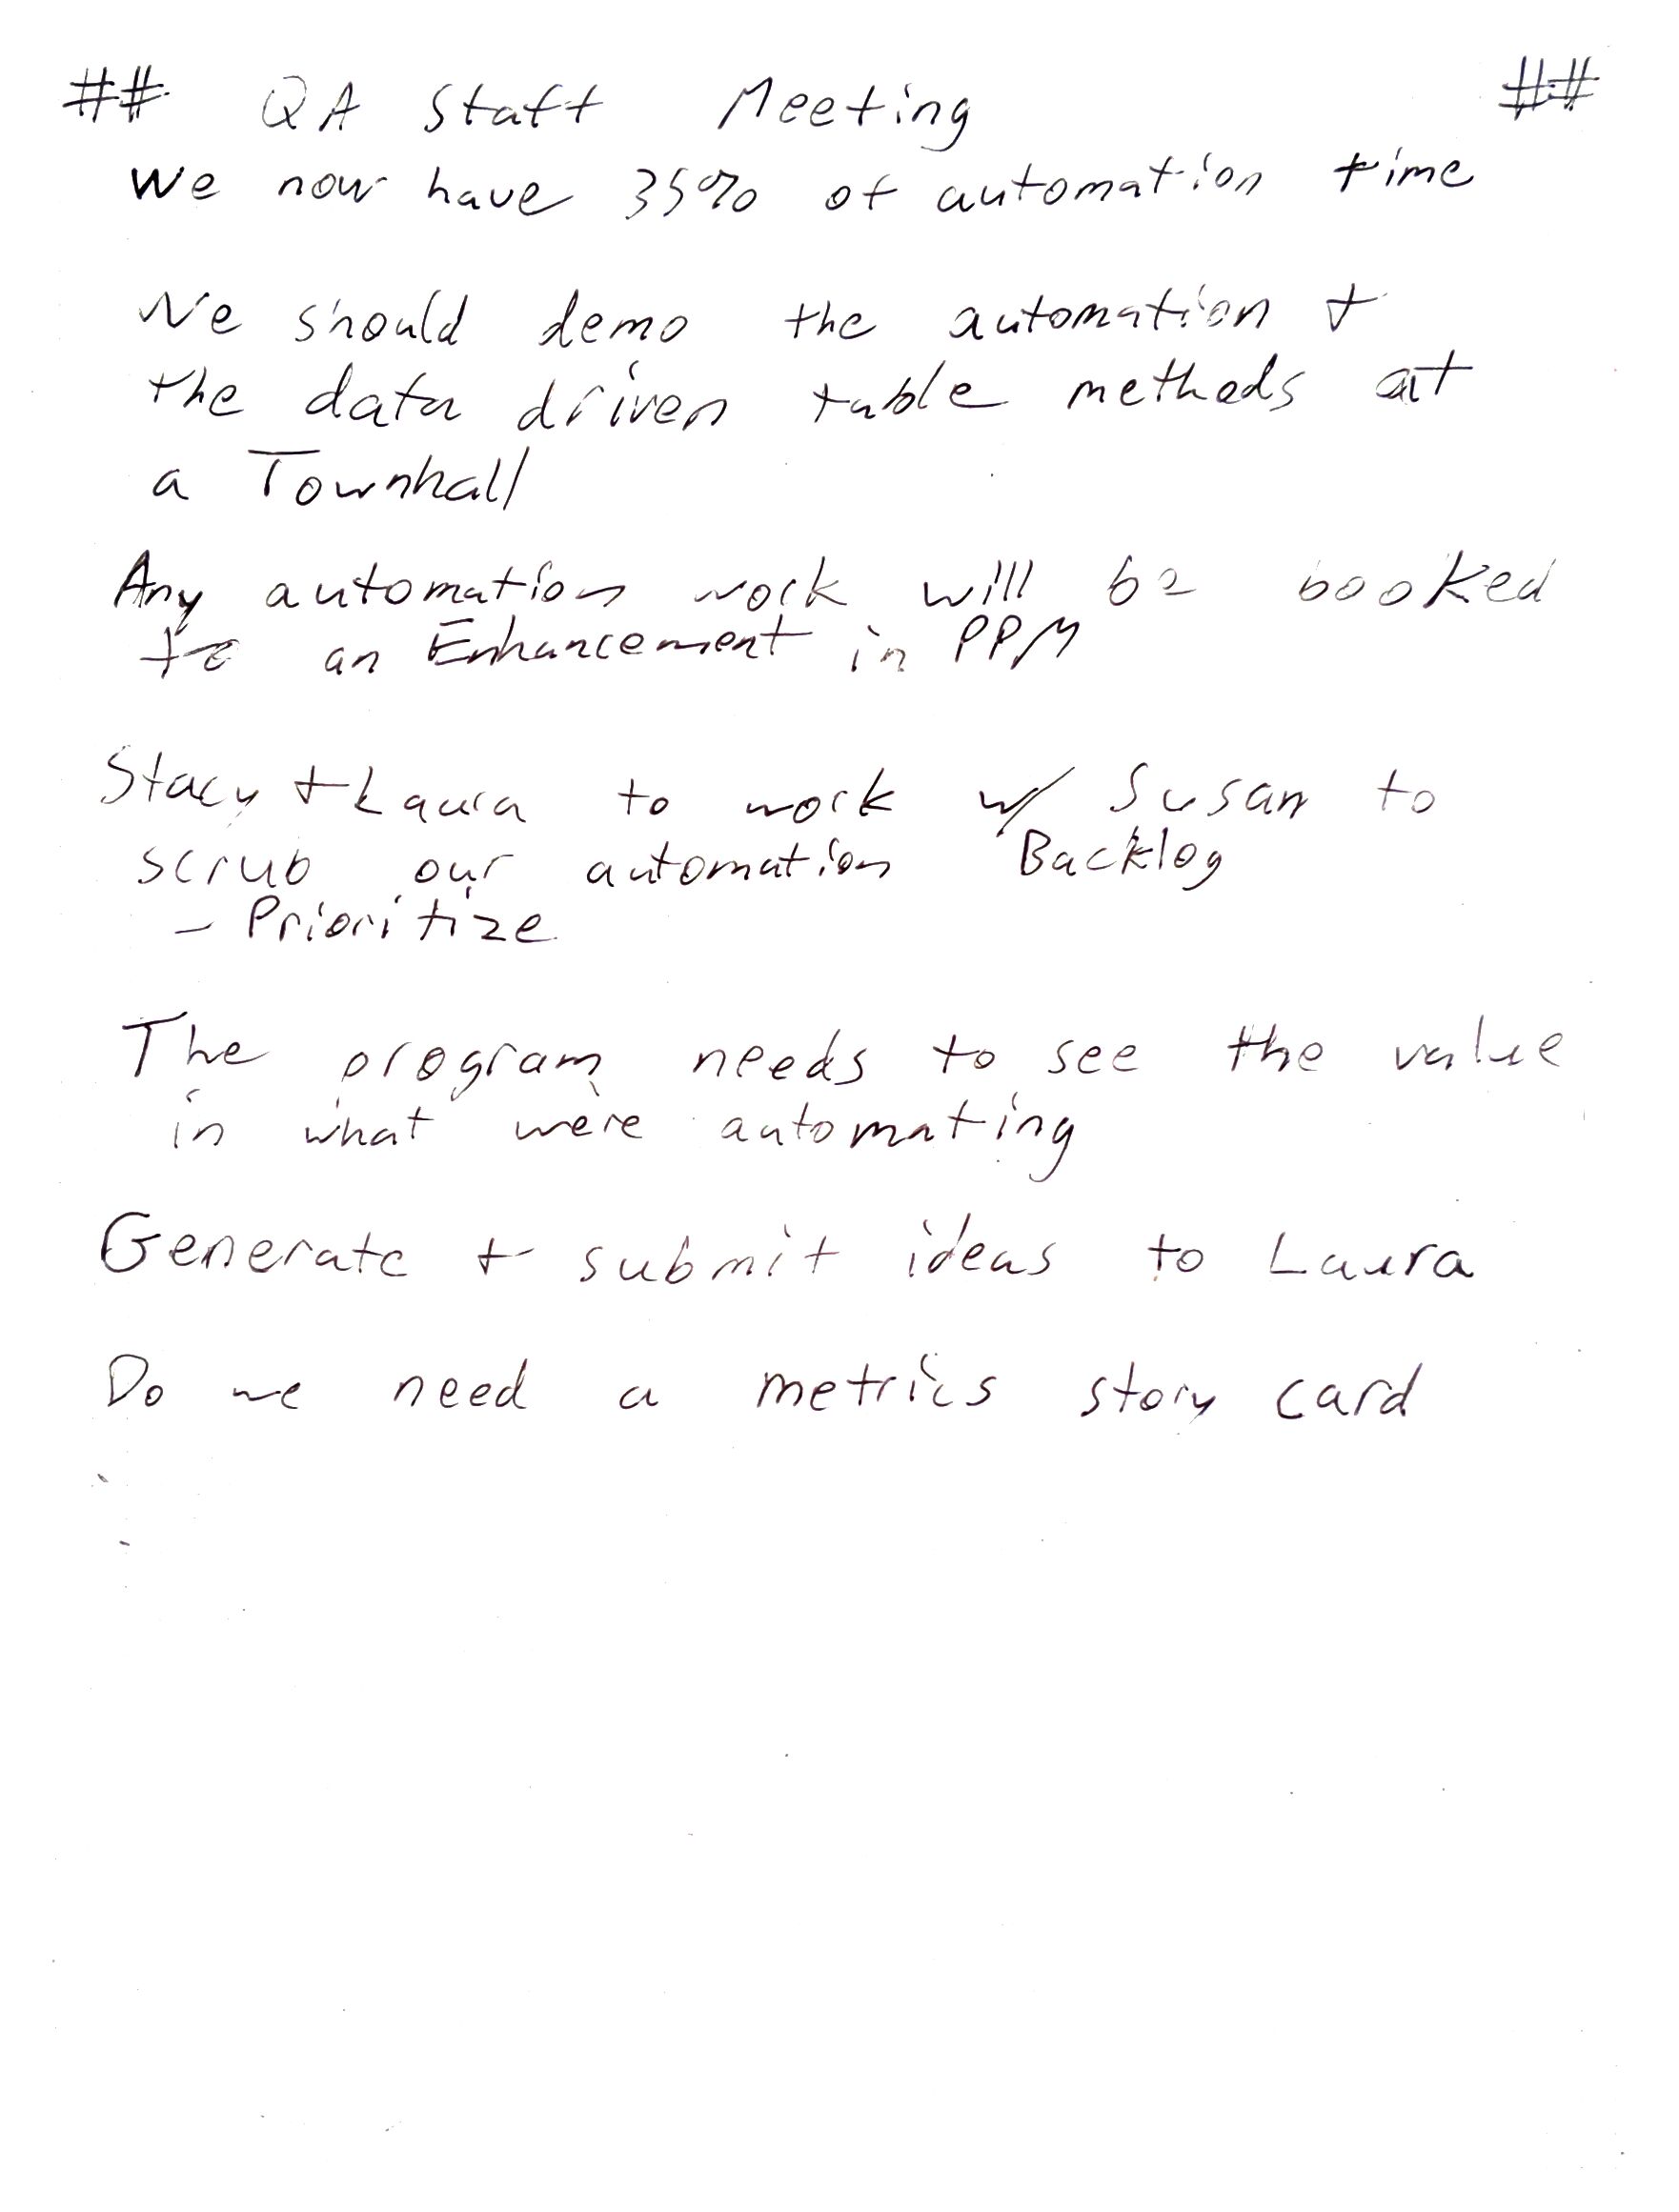 ## QA Staff Meeting ##
We now have 35% of automation time
We should demo the automation &
the data driven table methods at
a Townhall
Any automation work will be booked
to an Enhancement in PPM
Stacy & Laura to work w/ Susan to
scrub our automation Backlog
- Prioritize
The program needs to see the value
in what we're automating
Generate & submit ideas to Laura
Do we need a metrics story card